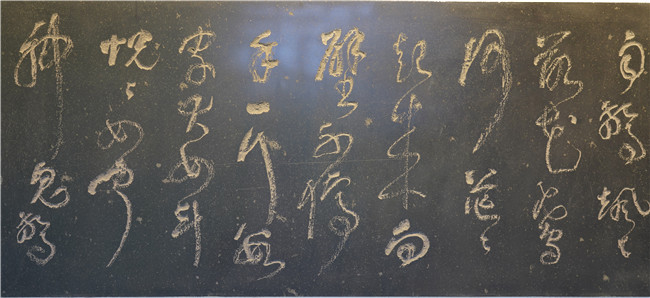 雨驚颯々
落花飛雪
何茫々
起來向
壁不停
手一行數
字大如斗
怳々如聞
神鬼驚